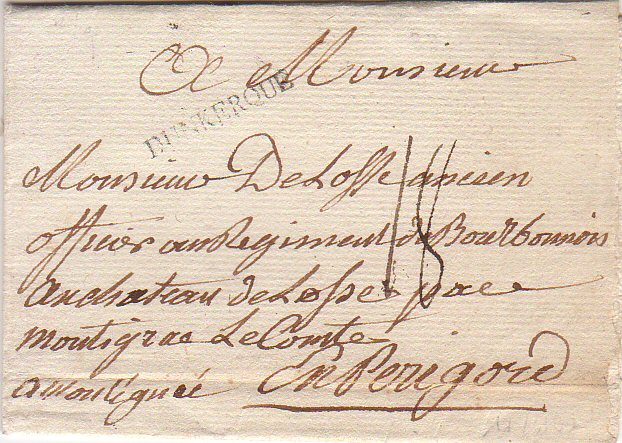 A Monsieur
DUNKERQUE
Monsieur De Losse ancien
officier au Regiment de Bourbonnois
au chateau de Losse par
montignac Le Comte
a montignac En Perigord
18